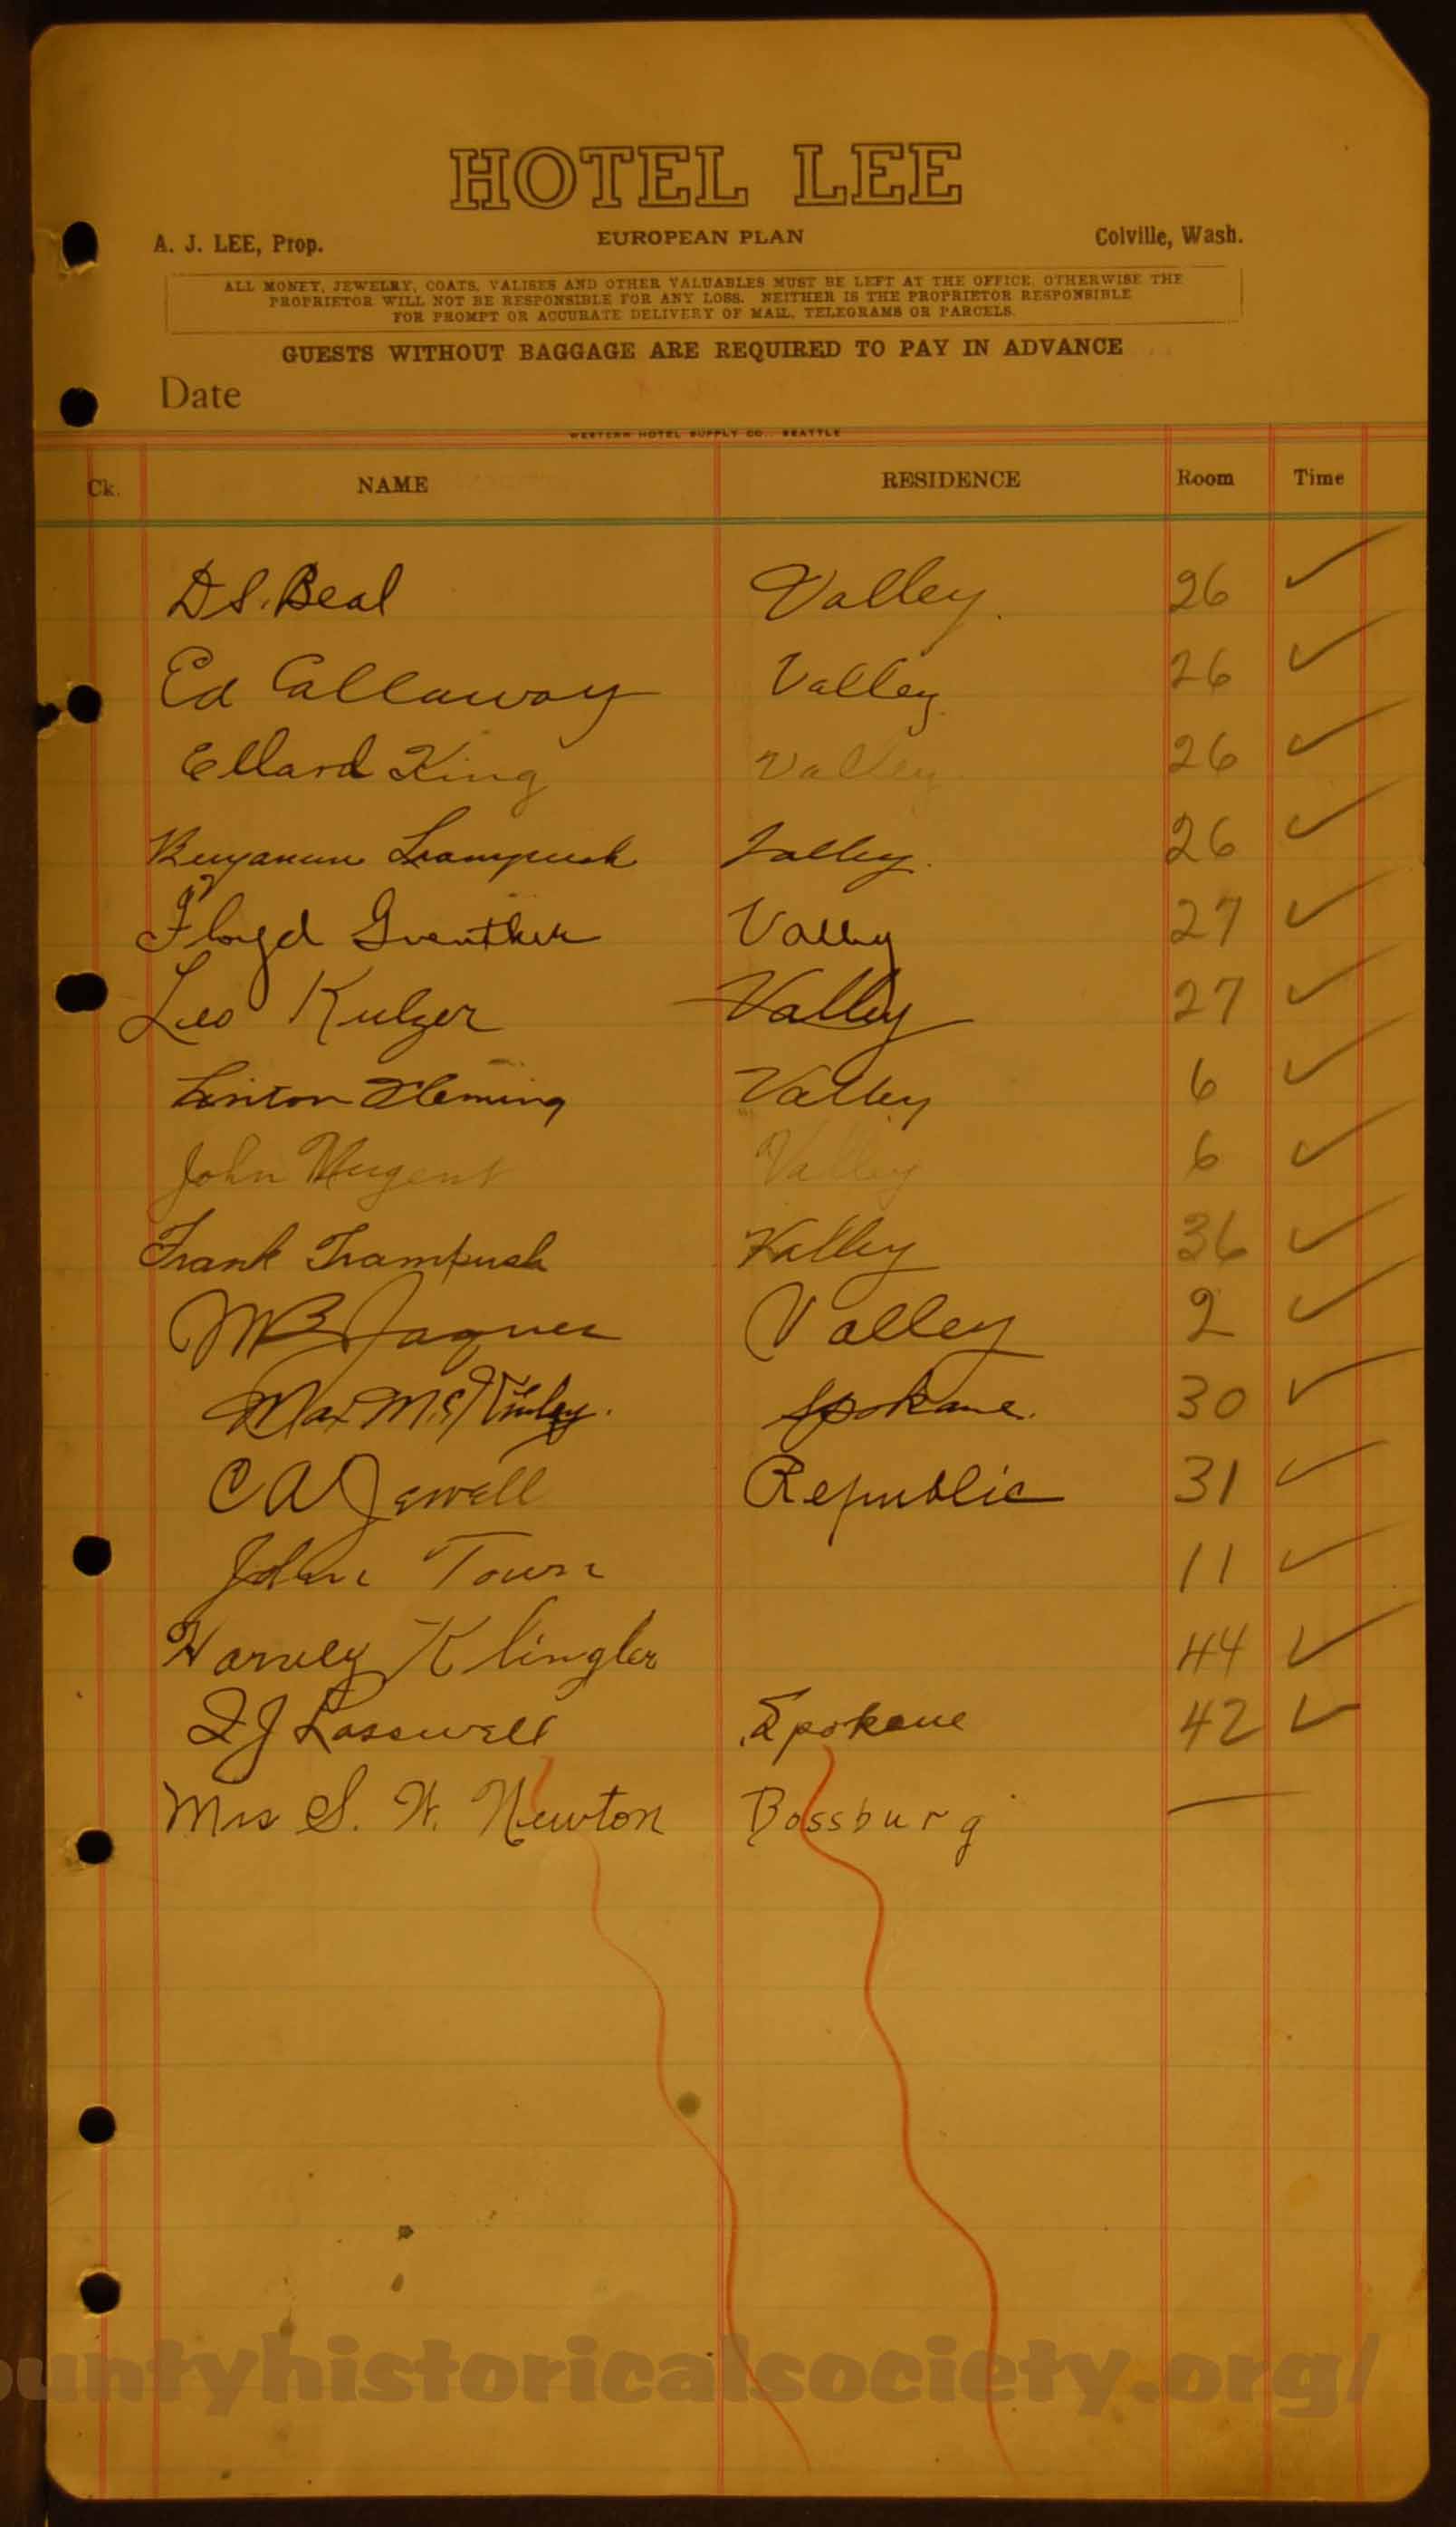 HOTEL LEE
A. J. LEE, Prop. EUROPEAN PLAN Colville, Wash.
ALL MONEY, JEWELRY, COATS, VALISES AND OTHER VALUABLES MUST BE LEFT AT THE OFFICE, OTHERWISE THE
PROPRIETOR WILL NOT BE RESPONSIBLE FOR ANY LOSS. NEITHER IS THE PROPRIETOR RESPONSIBLE
FOR PROMPT OR ACCURATE DELIVERY OF MAIL, TELEGRAMS OR PARCELS.
GUESTS WITHOUT BAGGAGE ARE REQUIRED TO PAY IN ADVANCE
Date
WESTERN HOTEL SUPPLY CO., SEATTLE
Ck. NAME RESIDENCE Room Time
D S. Beal Valley. 26 ✓
Ed Callaway Valley 26 ✓
Ellard King Valley 26 ✓
Valley. 26 ✓
Floyd Valley 27 ✓
Leo Kulzer Valley 27 ✓
Linton Fleming Valley 6 ✓
John Nugent Valley 6 ✓
Frank Trampush Valley 36 ✓
MB Jaques Valley 2 ✓
Max Spokane. 30 ✓
C A Jewell Republic 31 ✓
John Town 11 ✓
Harvey Klingler 44 ✓
Spokane 42 ✓
Mrs S. W. Newton Bossburg —
ountyhistoricalsociety.org/